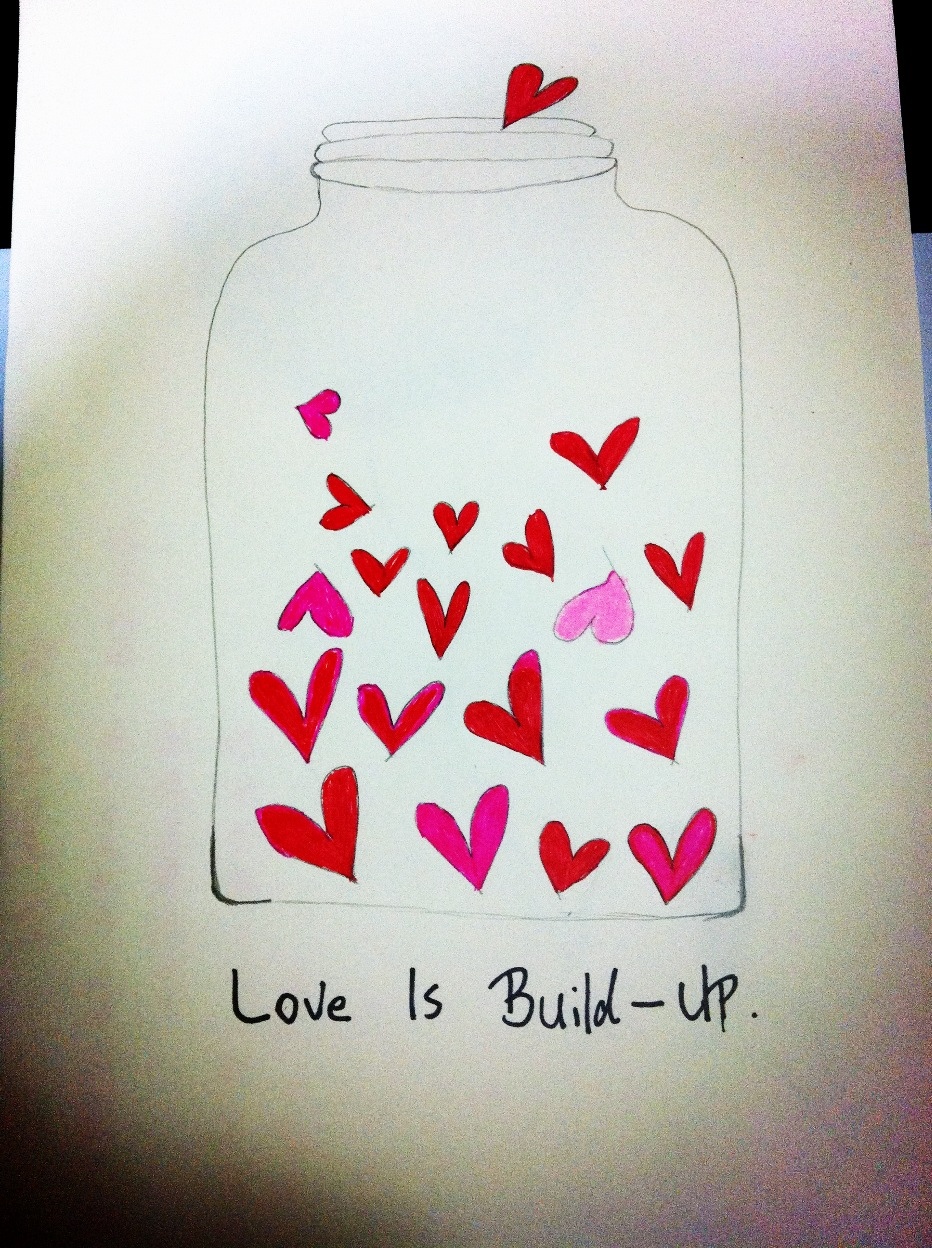 Love Is Build-Up.